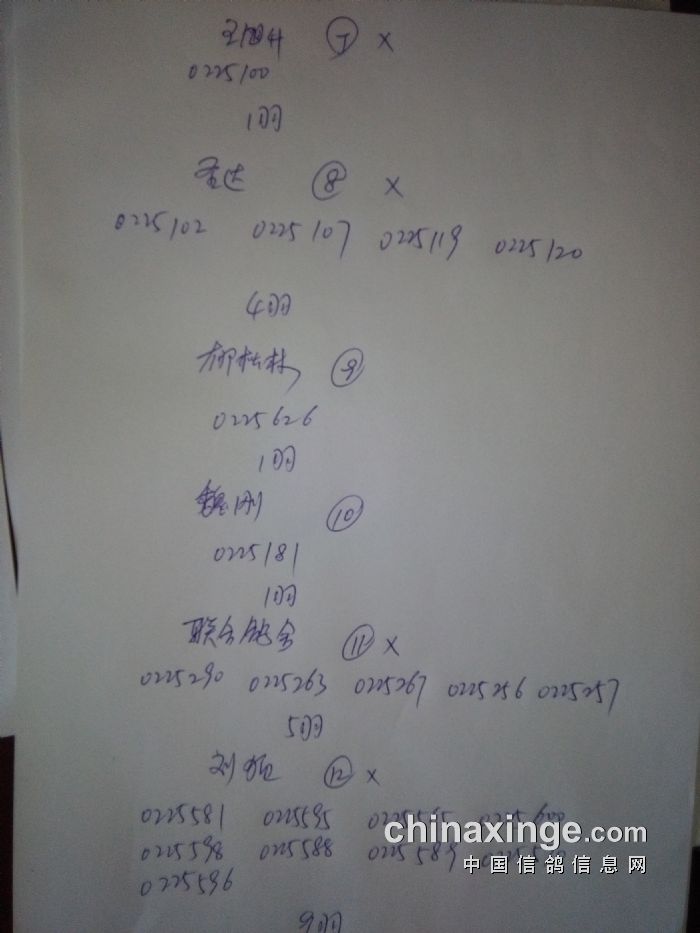 ⑦ ×
0225100
1羽
孟达 ⑧ ×
0225102 0225107 0225119 0225120
4羽
柳松林 ⑨
0225626
1羽
魏刚 ⑩
0225181
1羽
联合鸽舍 ⑪ ×
0225290 0225263 0225267 0225256 0225257
5羽
刘 ⑫ ×
0225581 0225595
0225598 0225588 0225589
0225596
9羽
chinaxinge.com
中国信鸽信息网